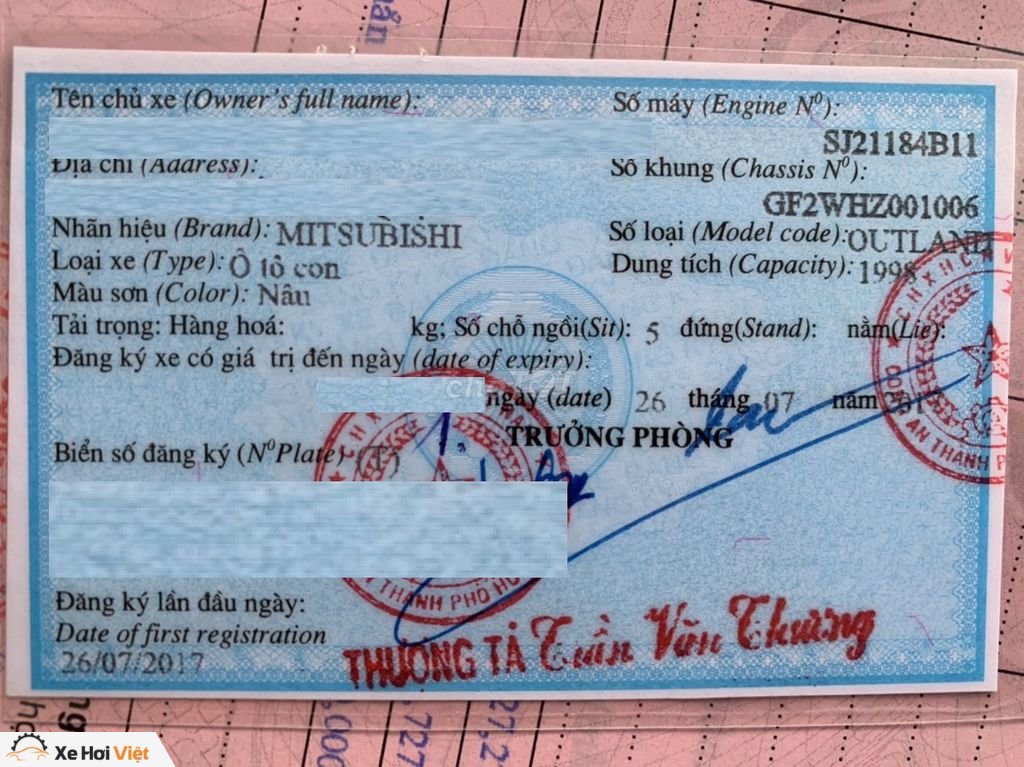 Tên chủ xe (Owner's full name):
Số máy (Engine N⁰):
SJ21184B11
Địa chỉ (Address):
Số khung (Chassis N⁰):
GF2WHZ001006
Nhãn hiệu (Brand): MITSUBISHI
Số loại (Model code): OUTLAND
Loại xe (Type): Ô tô con
Dung tích (Capacity): 1998
Màu sơn (Color): Nâu
Tải trọng: Hàng hoá: kg; Số chỗ ngồi(Sit): 5 đứng(Stand): nằm(Lie):
Đăng ký xe có giá trị đến ngày (date of expiry):
ngày (date) 26 tháng 07 năm 2017
TRƯỞNG PHÒNG
Biển số đăng ký (N⁰Plate) (T)
THÀNH PHỐ
AN THÀNH PH
Đăng ký lần đầu ngày:
Date of first registration
26/07/2017
THƯỢNG TÁ Trần Văn Thương
27,2
727
,000
Xe Hơi Việt